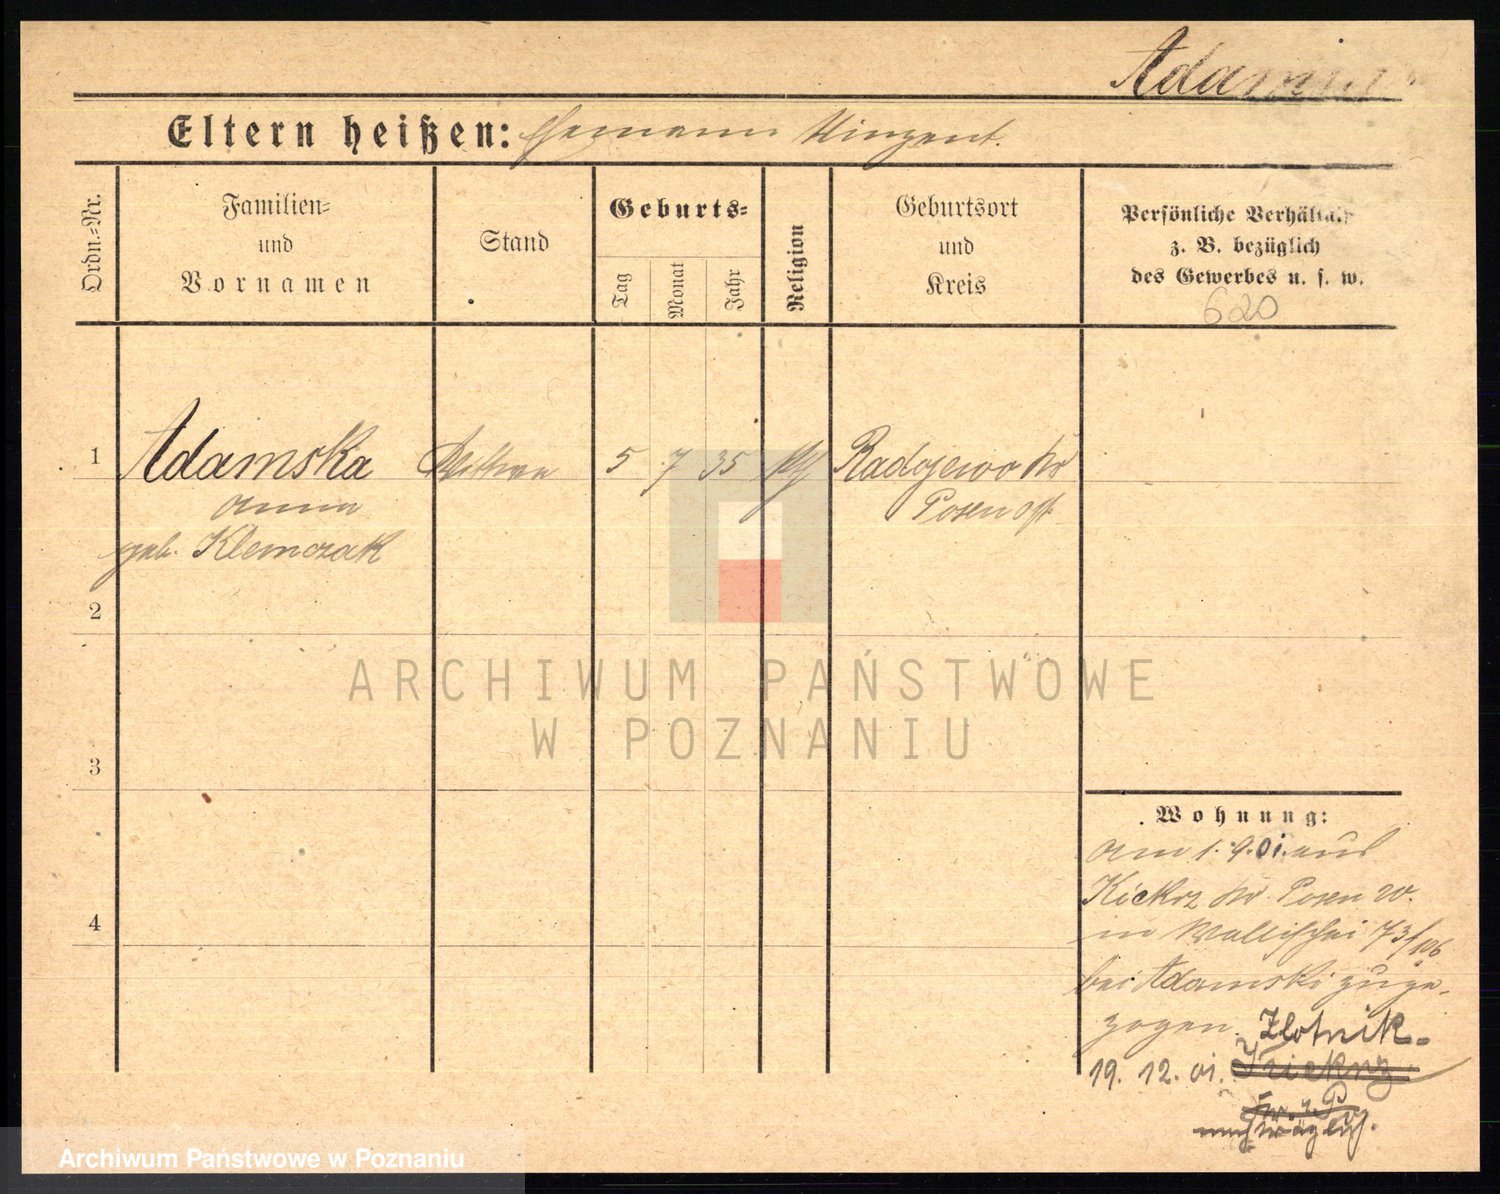 Eltern heißen: Hermann Vinzent.
Ordn.=Nr.
Familien=
und
Vornamen
Stand
Geburts=
Tag
Monat
Jahr
Religion
Geburtsort
und
Kreis
Persönliche Verhältnis
z. B. bezüglich
des Gewerbes u. s. w.
620
1 Adamska Wittwe 5 7 35 Radojewo Kr
Anna Posen Ost
geb. Klemczak
2
3
4
Wohnung:
am 1. 9. 01. aus
Kiekrz Kr. Posen W.
in Wallischei 73/106
bei Adamski zuge-
zogen. Zlotnik-
19. 12. 01.
ARCHIWUM PAŃSTWOWE
W POZNANIU
Archiwum Państwowe w Poznaniu